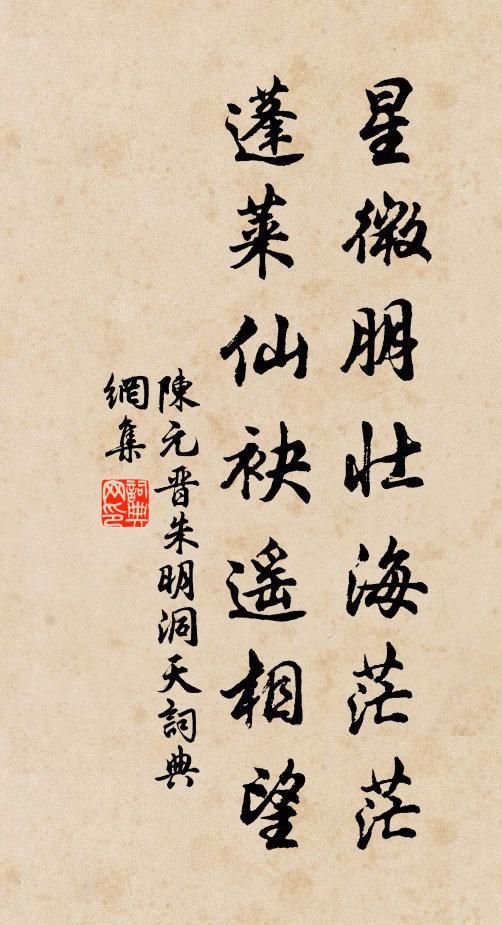 星微朋壮海茫茫
蓬莱仙袂遥相望
陳元晋朱明洞天詞典
網集
詞典
网印